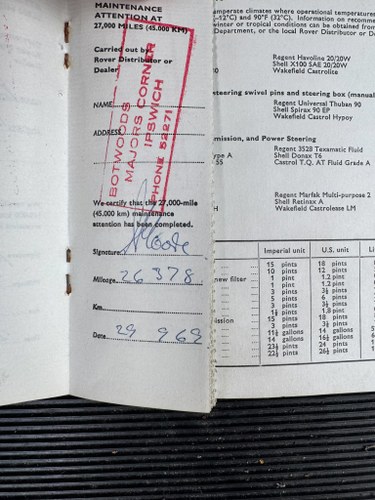 MAINTENANCE
ATTENTION AT
27,000 MILES (45.000 KM)
Carried out by
Rover Distributor or
Dealer
BOTWOODS
MAJORS CORNER
IPSWICH
PHONE 52271
NAME
ADDRESS
We certify that the 27,000-mile
(45.000 km) maintenance
attention has been completed.
Signature
Mileage 26378
Km.
Date 29 9 69
mperate climates where operational temperatures
(–12°C) and 90°F (32°C). Information on recomme
winter or tropical conditions can be obtained from
Department, or the local Rover Distributor or D
Regent Havoline 20/20W
Shell X100 SAE 20/20W
Wakefield Castrolite
steering swivel pins and steering box (manual
Regent Universal Thuban 90
Shell Spirax 90 EP
Wakefield Castrol Hypoy
mission, and Power Steering
ype A
Regent 3528 Texamatic Fluid
Shell Donax T6
55 Castrol T.Q. AT Fluid Grade A
Regent Marfak Multi-purpose 2
Shell Retinax A
H Wakefield Castrolease LM
Imperial unit U.S. unit Li
15 pints 18 pints
10 pints 12 pints
new filter 1 pint 1.2 pint
1 pint 1.2 pint
3 pints 3½ pints
5 pints 6 pints
3 pints 3½ pints
1½ pints 1.8 pint
ission 15 pints 18 pints
3 pints 3½ pints
11½ gallons 14 gallons
14 gallons 16½ gallons
pints 24 pints
22½ pints 26½ pints